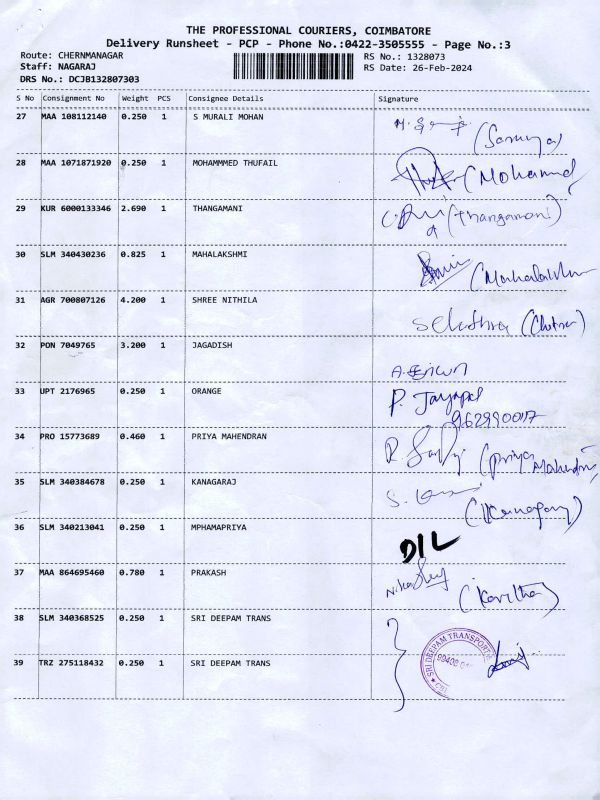 THE PROFESSIONAL COURIERS, COIMBATORE
Delivery Runsheet - PCP - Phone No.:0422-3505555 - Page No.:3
Route: CHERNMANAGAR
RS No.: 1328073
Staff: NAGARAJ
RS Date: 26-Feb-2024
DRS No.: DCJB132807303
S No Consignment No Weight PCS Consignee Details Signature
27 MAA 108112140 0.250 1 S MURALI MOHAN
(Sarunya)
28 MAA 1071871920 0.250 1 MOHAMMMED THUFAIL
(Mohammed
29 KUR 6000133346 2.690 1 THANGAMANI
(Thangamani)
30 SLM 340430236 0.825 1 MAHALAKSHMI
(Mahalakshmi
31 AGR 700807126 4.200 1 SHREE NITHILA
32 PON 7049765 3.200 1 JAGADISH
33 UPT 2176965 0.250 1 ORANGE P. Jayapal
34 PRO 15773689 0.460 1 PRIYA MAHENDRAN
(Priya Mahendran)
35 SLM 340384678 0.250 1 KANAGARAJ
36 SLM 340213041 0.250 1 MPHAMAPRIYA
DIL
37 MAA 864695460 0.780 1 PRAKASH
(Kavitha)
38 SLM 340368525 0.250 1 SRI DEEPAM TRANS
SRI DEEPAM TRANSPORT
39 TRZ 275118432 0.250 1 SRI DEEPAM TRANS